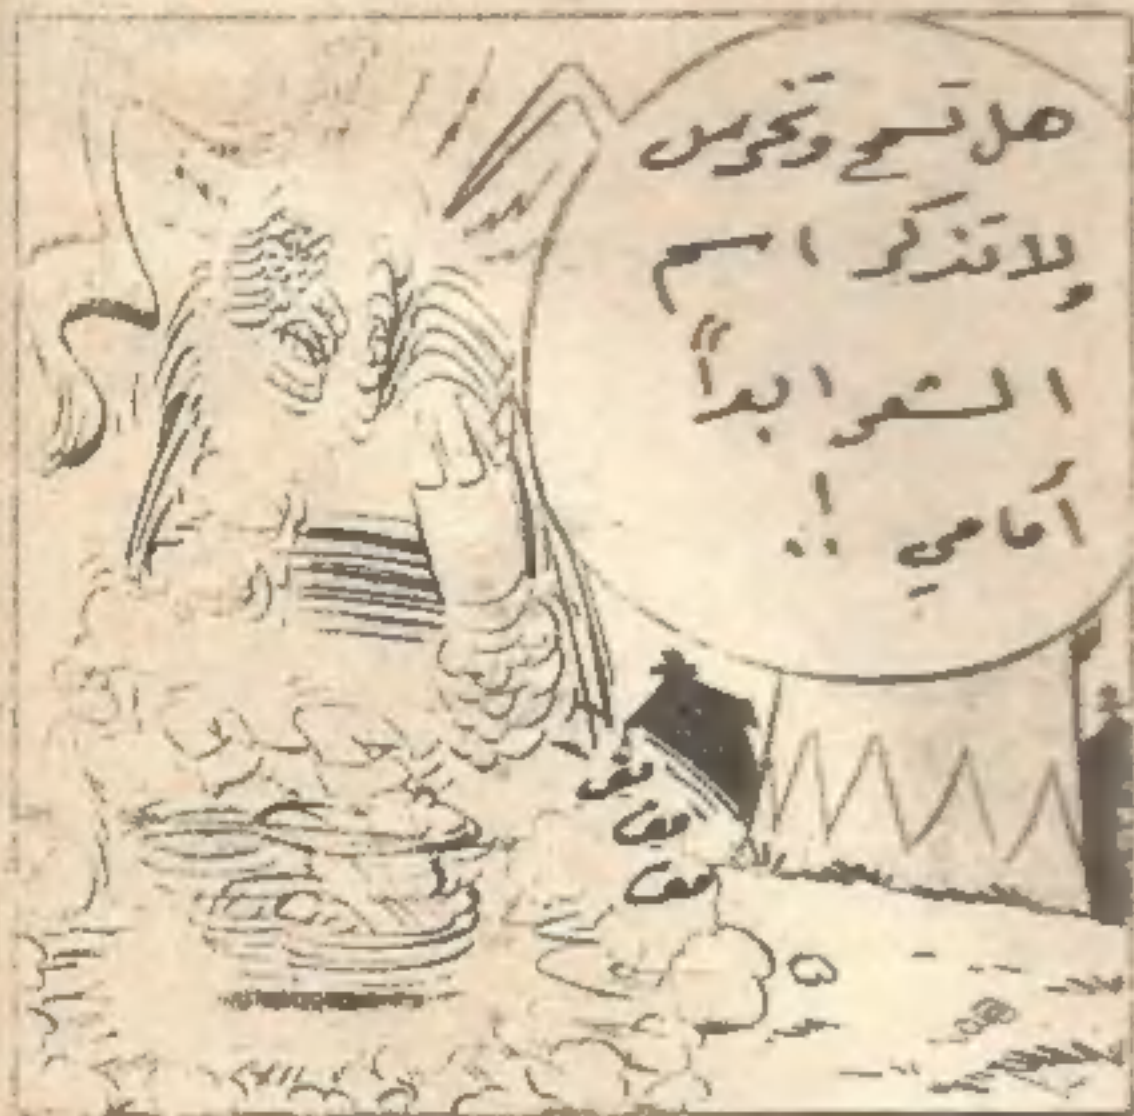 هل تسمح وتخرس
ولا تذكر اسم
الشعر ابداً
أمامي !!